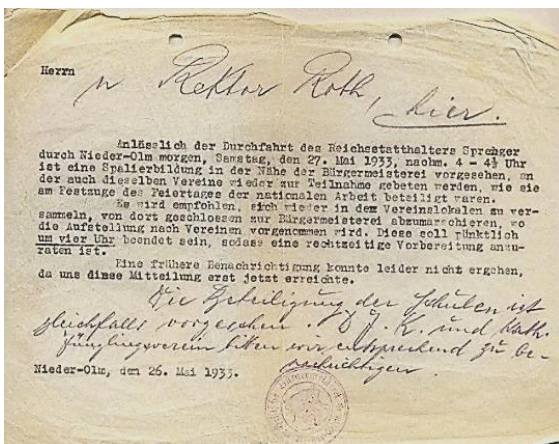 Herrn
Rektor Roth, hier.
Anlässlich der Durchfahrt des Reichsstatthalters Sprenger
durch Nieder-Olm morgen, Samstag, den 27. Mai 1933, nachm. 4 - 4½ Uhr
ist eine Spalierbildung in der Nähe der Bürgermeisterei vorgesehen, an
der auch dieselben Vereine wieder zur Teilnahme gebeten werden, wie sie
am Festzuge des Feiertages der nationalen Arbeit beteiligt waren.
Es wird empfohlen, sich wieder in den Vereinslokalen zu ver-
sammeln, von dort geschlossen zur Bürgermeisterei abzumarschieren, wo
die Aufstellung nach Vereinen vorgenommen wird. Diese soll pünktlich
um vier Uhr beendet sein, sodass eine rechtzeitige Vorbereitung anzu-
raten ist.
Eine frühere Benachrichtigung konnte leider nicht ergehen,
da uns diese Mitteilung erst jetzt erreichte.
Die Beteiligung der Schulen ist
gleichfalls vorgesehen. D.J.K. und Kath.
Jünglingsverein bitten wir entsprechend zu be-
nachrichtigen.
Nieder-Olm, den 26. Mai 1933.